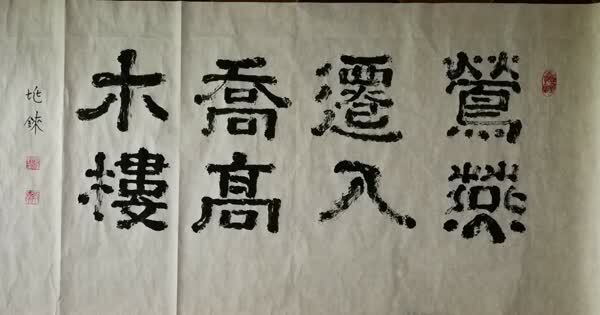 鶯遷喬木
燕入高樓